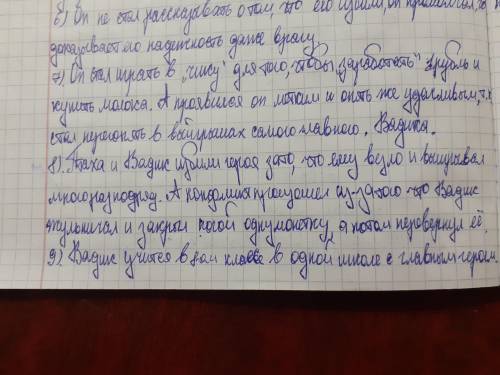 6) Он не стал рассказывать о том, что его избили, он промолчал, а
доказывает его надежность даже врагу.
7) Он стал играть в "чику" для того, чтобы "заработать" рубль и
купить молока. А проявился он метким и опять же удачливым, т.к
стал перегонять в выйгрышах самого главного. Вадика.
8) Птаха и Вадик избили героя зато, что ему везло и выигрывал
много раз подряд. А конфликт произошел из-за того что Вадик
жульничал и закрыл ногой одну монетку, а потом перевернул её.
9) Вадик учится в 7ом классе в одной школе с главным героем.